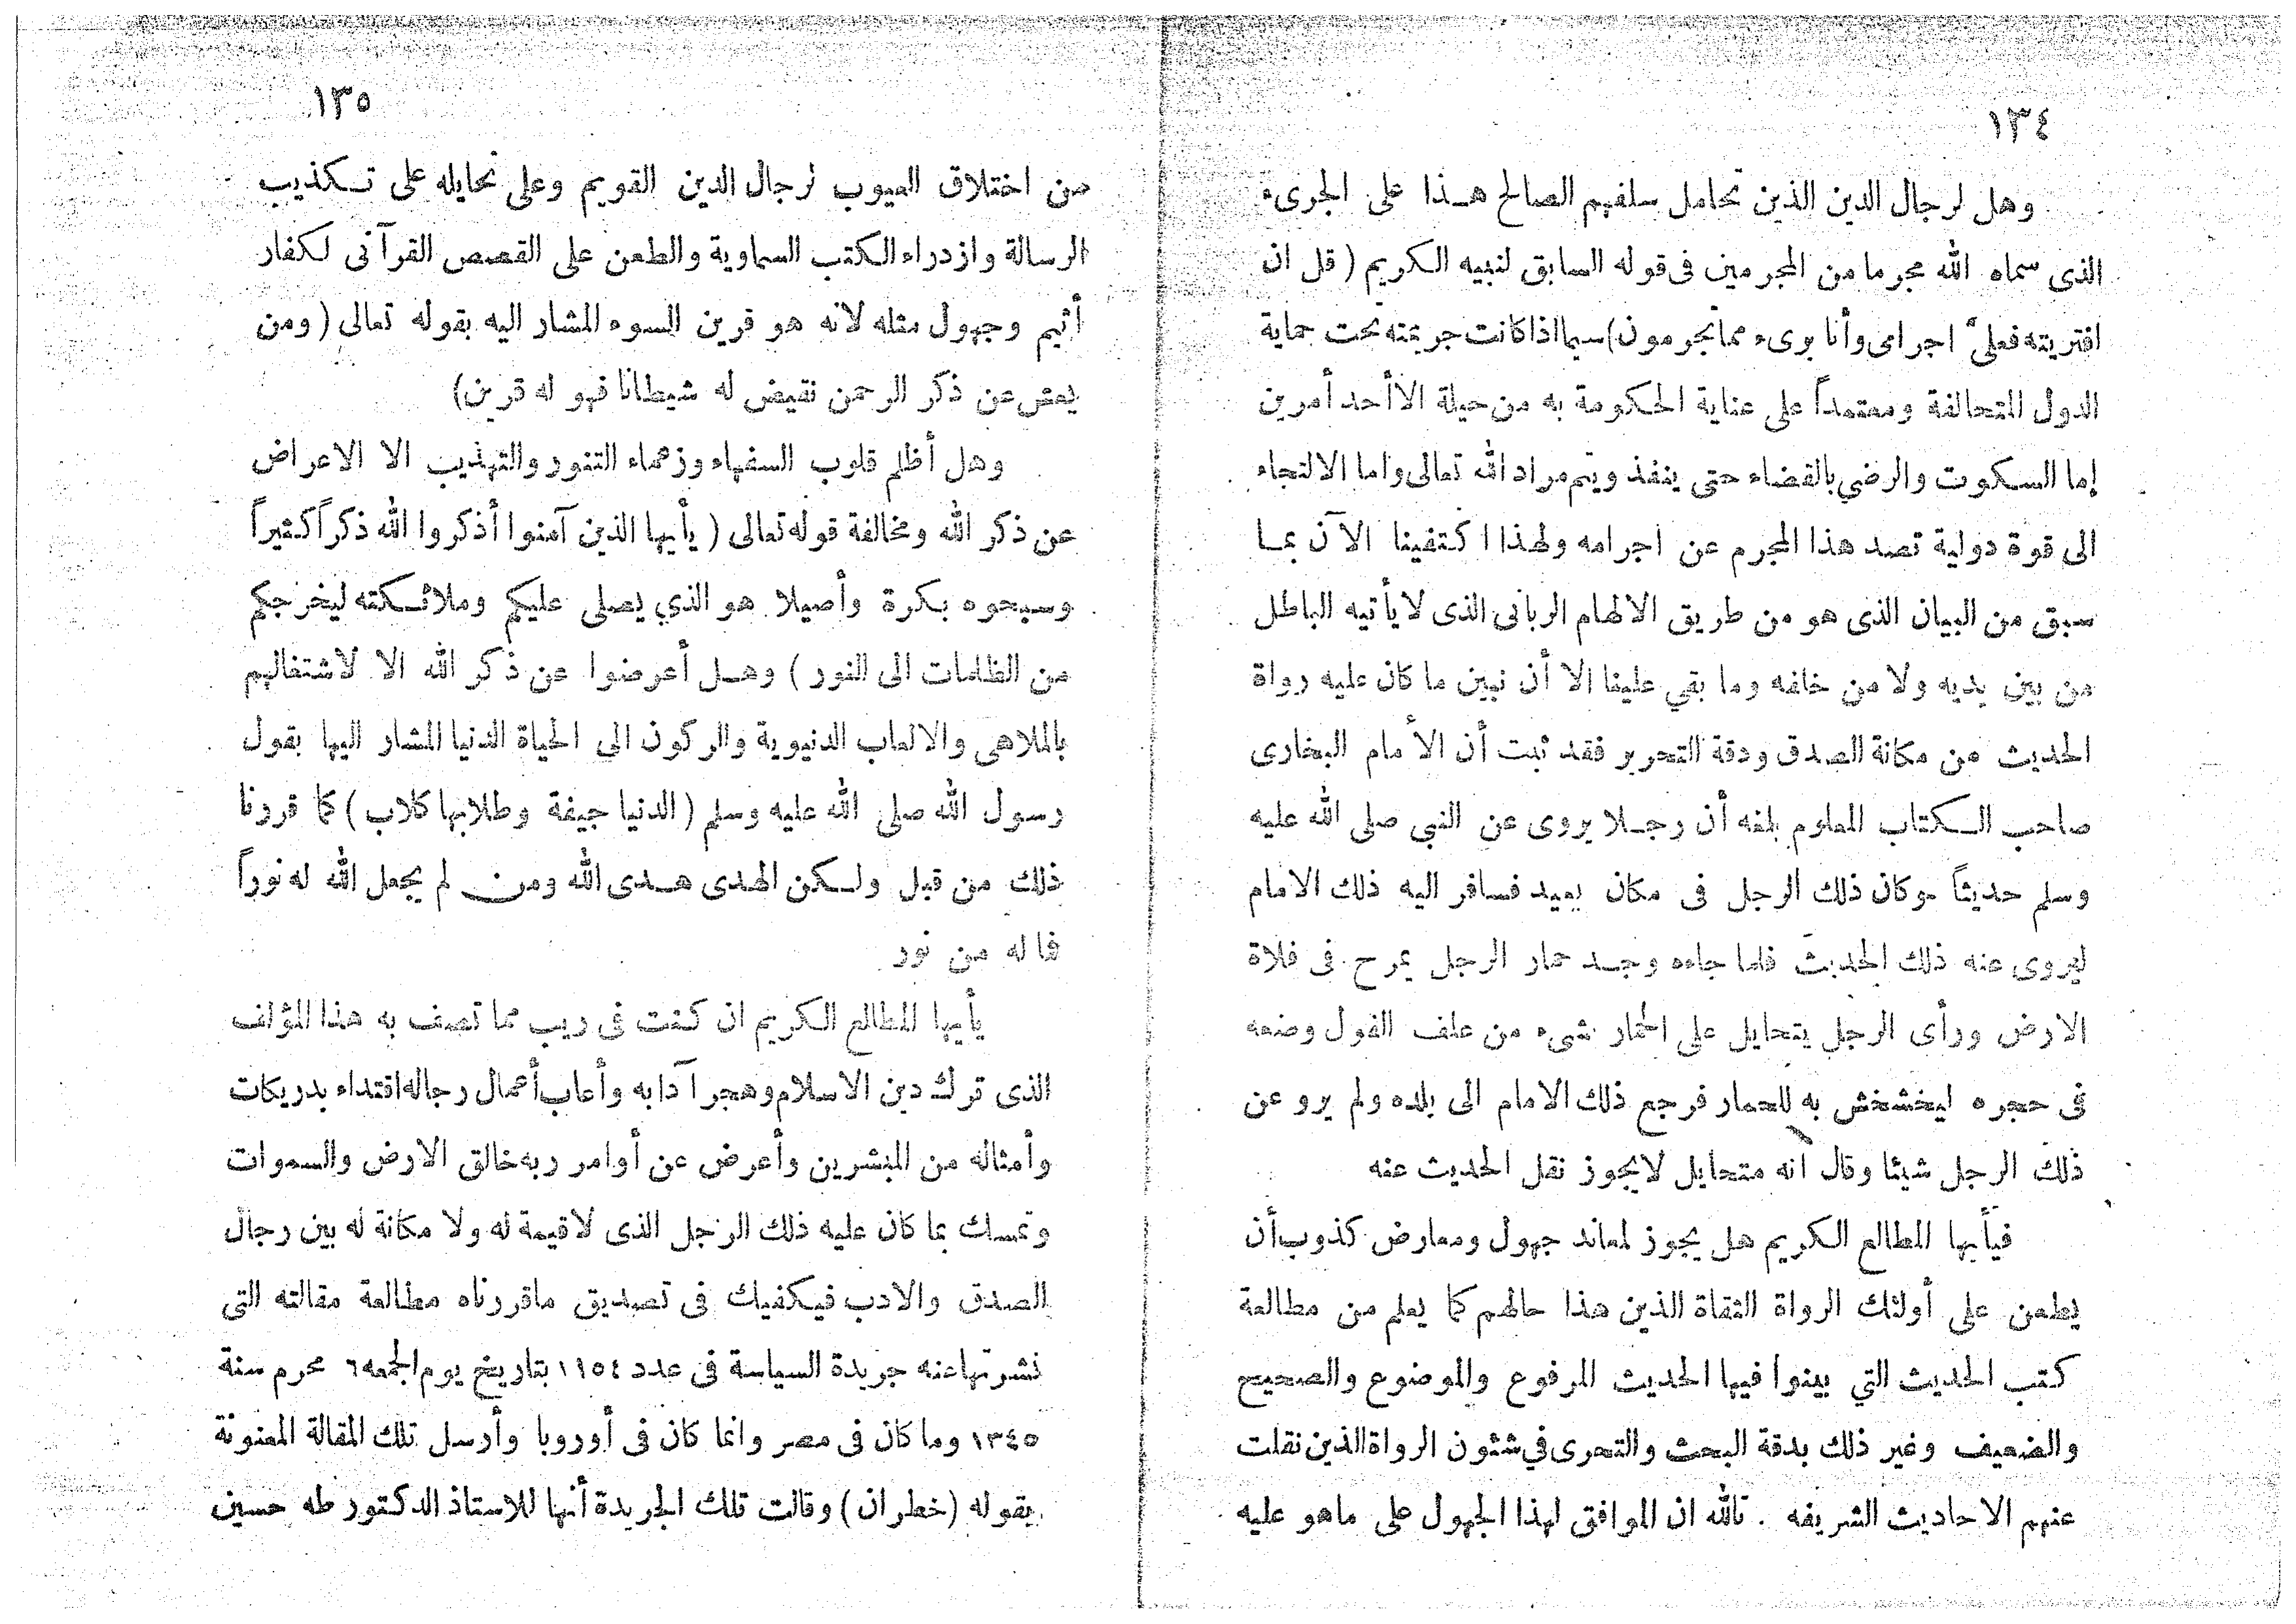 ١٣٤
وهل لرجال الدين الذين تحامل سلفهم الصالح هـذا على الجرىء
الذى سماه الله مجرما من المجرمين فى قوله السابق لنبيه الكريم (قل ان
افتريته فعلىّ اجرامى وأنا برىء مما تجرمون) سيما اذا كانت جريمته تحت حماية
الدول المتحالفة ومعتمداً على عناية الحكومة به من حيلة الا أحد أمرين
إما السكوت والرضي بالقضاء حتى ينفذ ويتم مراد الله تعالى واما الالتجاء
الى قوة دولية تصد هذا المجرم عن اجرامه ولهذا اكتفينا الآن بمـا
سبق من البيان الذى هو من طريق الالهام الربانى الذى لا يأتيه الباطل
من بين يديه ولا من خلفه وما بقي علينا الا أن نبين ما كان عليه رواة
الحديث من مكانة الصدق ودقة التحرير فقد ثبت أن الأمام البخارى
صاحب الـكتاب المعلوم بلغه أن رجـلا يروى عن النبى صلى الله عليه
وسلم حديثاً وكان ذلك الرجل فى مكان بعيد فسافر اليه ذلك الامام
ليروى عنه ذلك الحديث فلما جاءه وجـد حمار الرجل يمرح فى فلاة
الارض ورأى الرجل يتحايل على الحمار بشىء من علف الفول وضعه
فى حجره ليخشخش به للحمار فرجع ذلك الامام الى بلده ولم يرو عن
ذلك الرجل شيئا وقال انه متحايل لا يجوز نقل الحديث عنه
فيأيها المطالع الكريم هل يجوز لمعاند جهول ومعارض كذوب أن
يطعن على أولئك الرواة الثقاة الذين هذا حالهم كما يعلم من مطالعة
كتب الحديث التي بينوا فيها الحديث المرفوع والموضوع والصحيح
والضعيف وغير ذلك بدقة البحث والتحرى في شئون الرواة الذين نقلت
عنهم الاحاديث الشريفه . تالله ان الموافق لهذا الجهول على ماهو عليه
١٣٥
من اختلاق العيوب لرجال الدين القويم وعلى تحايله على تـكذيب
الرسالة وازدراء الكتب السماوية والطعن على القصص القرآنى لـكفار
أثيم وجهول مثله لانه هو قرين السوء المشار اليه بقوله تعالى (ومن
يعش عن ذكر الرحمن نقيض له شيطانا فهو له قرين)
وهل أظلم قلوب السفهاء وزعماء التنور والتهذيب الا الاعراض
عن ذكر الله ومخالفة قوله تعالى (يأيها الذين آمنوا أذكروا الله ذكراً كثيراً
وسبحوه بكرة وأصيلا هو الذي يصلى عليكم وملائـكته ليخرجكم
من الظلمات الى النور) وهـل أعرضوا عن ذكر الله الا لاشتغالهم
بالملاهى والالعاب الدنيوية والركون الى الحياة الدنيا المشار اليها بقول
رسول الله صلى الله عليه وسلم (الدنيا جيفة وطلابها كلاب) كما قررنا
ذلك من قبل ولـكن الهدى هـدى الله ومن لم يجعل الله له نوراً
فما له من نور
يأيها المطالع الكريم ان كنت فى ريب مما تصف به هذا المؤلف
الذى ترك دين الاسلام وهجر آدابه وأعاب أعمال رجاله اقتداء بدريكات
وأمثاله من المبشرين وأعرض عن أوامر ربه خالق الارض والسموات
وتمسك بما كان عليه ذلك الرجل الذى لا قيمة له ولا مكانة له بين رجال
الصدق والادب فيكفيك فى تصديق ماقررناه مطالعة مقالته التى
نشرتها عنه جريدة السياسة فى عدد ١١٥٤ بتاريخ يوم الجمعه ٦ محرم سنة
١٣٤٥ وما كان فى مصر وانما كان فى أوروبا وأرسل تلك المقالة المعنونة
بقوله (خطران) وقالت تلك الجريدة أنها للاستاذ الدكتور طه حسين